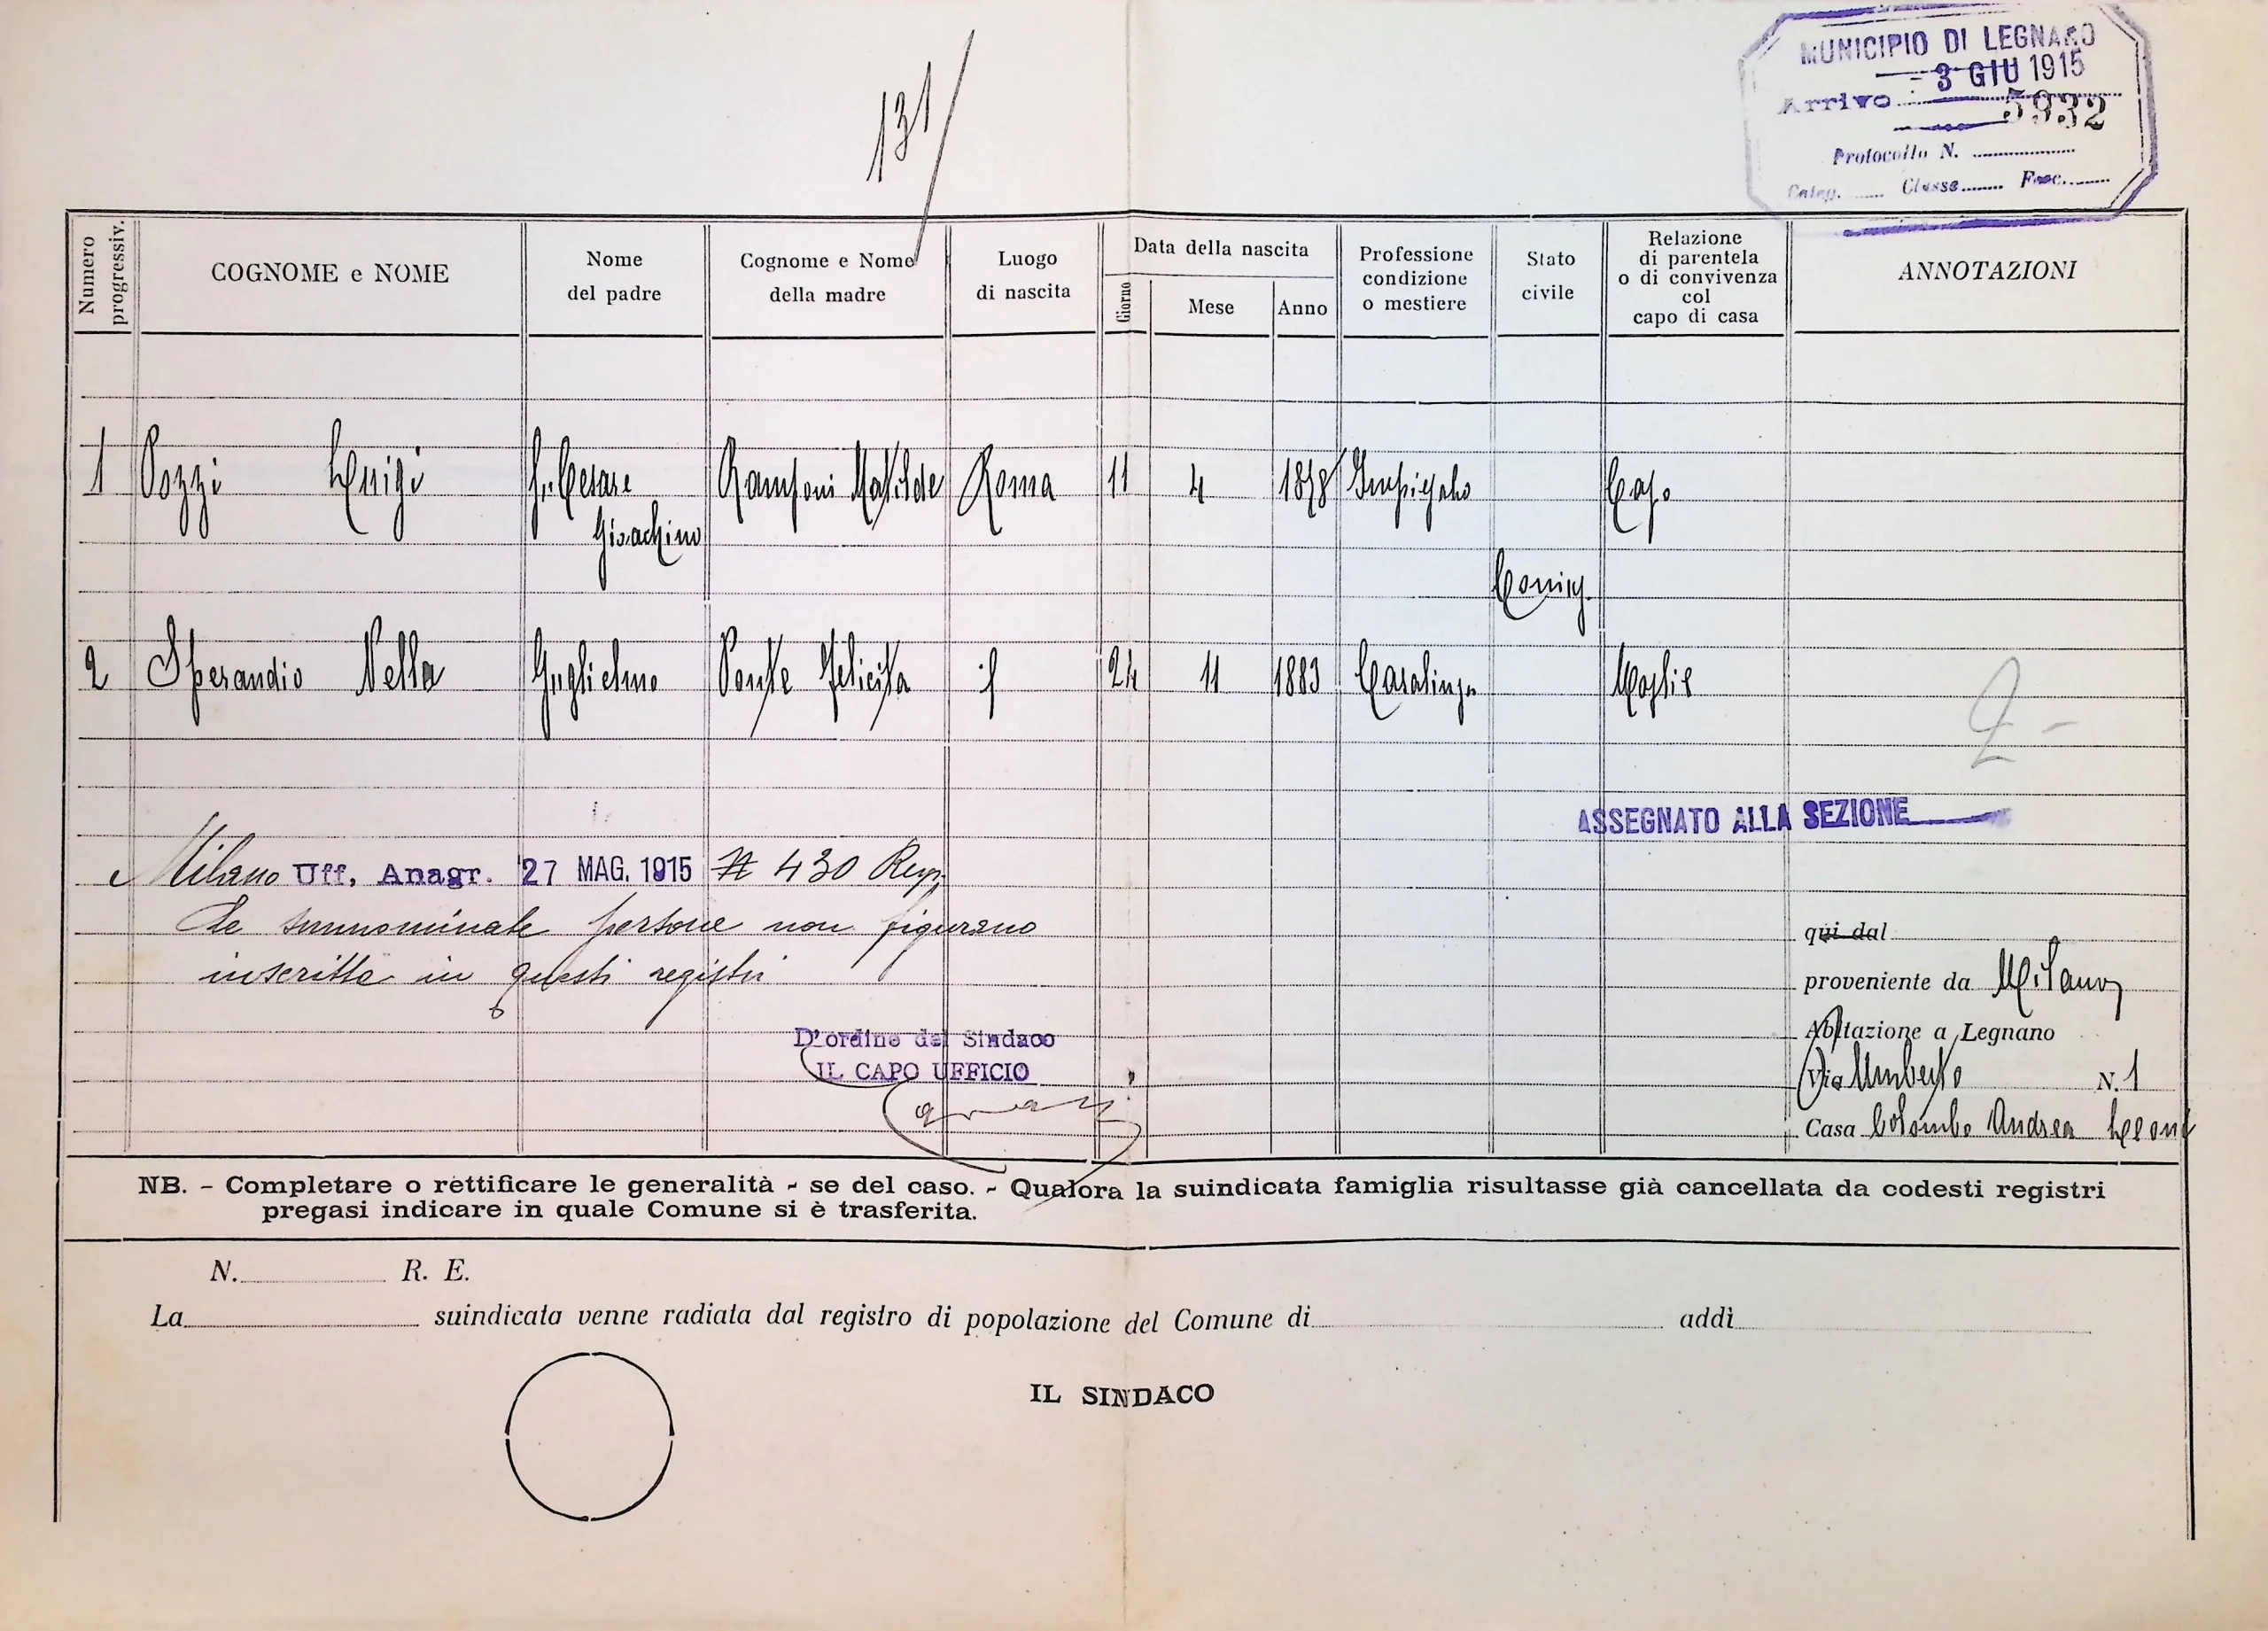 131
MUNICIPIO DI LEGNANO
- 3 GIU 1915
Arrivo
5932
Protocollo N.
Categ. Classe Fasc.
Numero progressiv.
COGNOME e NOME
Nome
del padre
Cognome e Nome
della madre
Luogo
di nascita
Data della nascita
Giorno
Mese
Anno
Professione
condizione
o mestiere
Stato
civile
Relazione
di parentela
o di convivenza
col
capo di casa
ANNOTAZIONI
1 Pozzi Luigi fu Cesare Ramponi Matilde Roma 11 4 1878 Impiegato Capo
Gioachino
Coniug.
2 Sperandio Nella Guglielmo Ponte Felicita if 24 11 1883 Casalinga Moglie
2 -
ASSEGNATO ALLA SEZIONE
Milano Uff. Anagr. 27 MAG. 1915 N 430 Resp.
Le sunnominate persone non figurano
inscritte in questi registri
D'ordine del Sindaco
IL CAPO UFFICIO
qui dal
proveniente da Milano
Abitazione a Legnano
Via Umberto N. 1
Casa Colombo Andrea Leone
NB. - Completare o rettificare le generalità - se del caso. - Qualora la suindicata famiglia risultasse già cancellata da codesti registri
pregasi indicare in quale Comune si è trasferita.
N. R. E.
La suindicata venne radiata dal registro di popolazione del Comune di addì
IL SINDACO